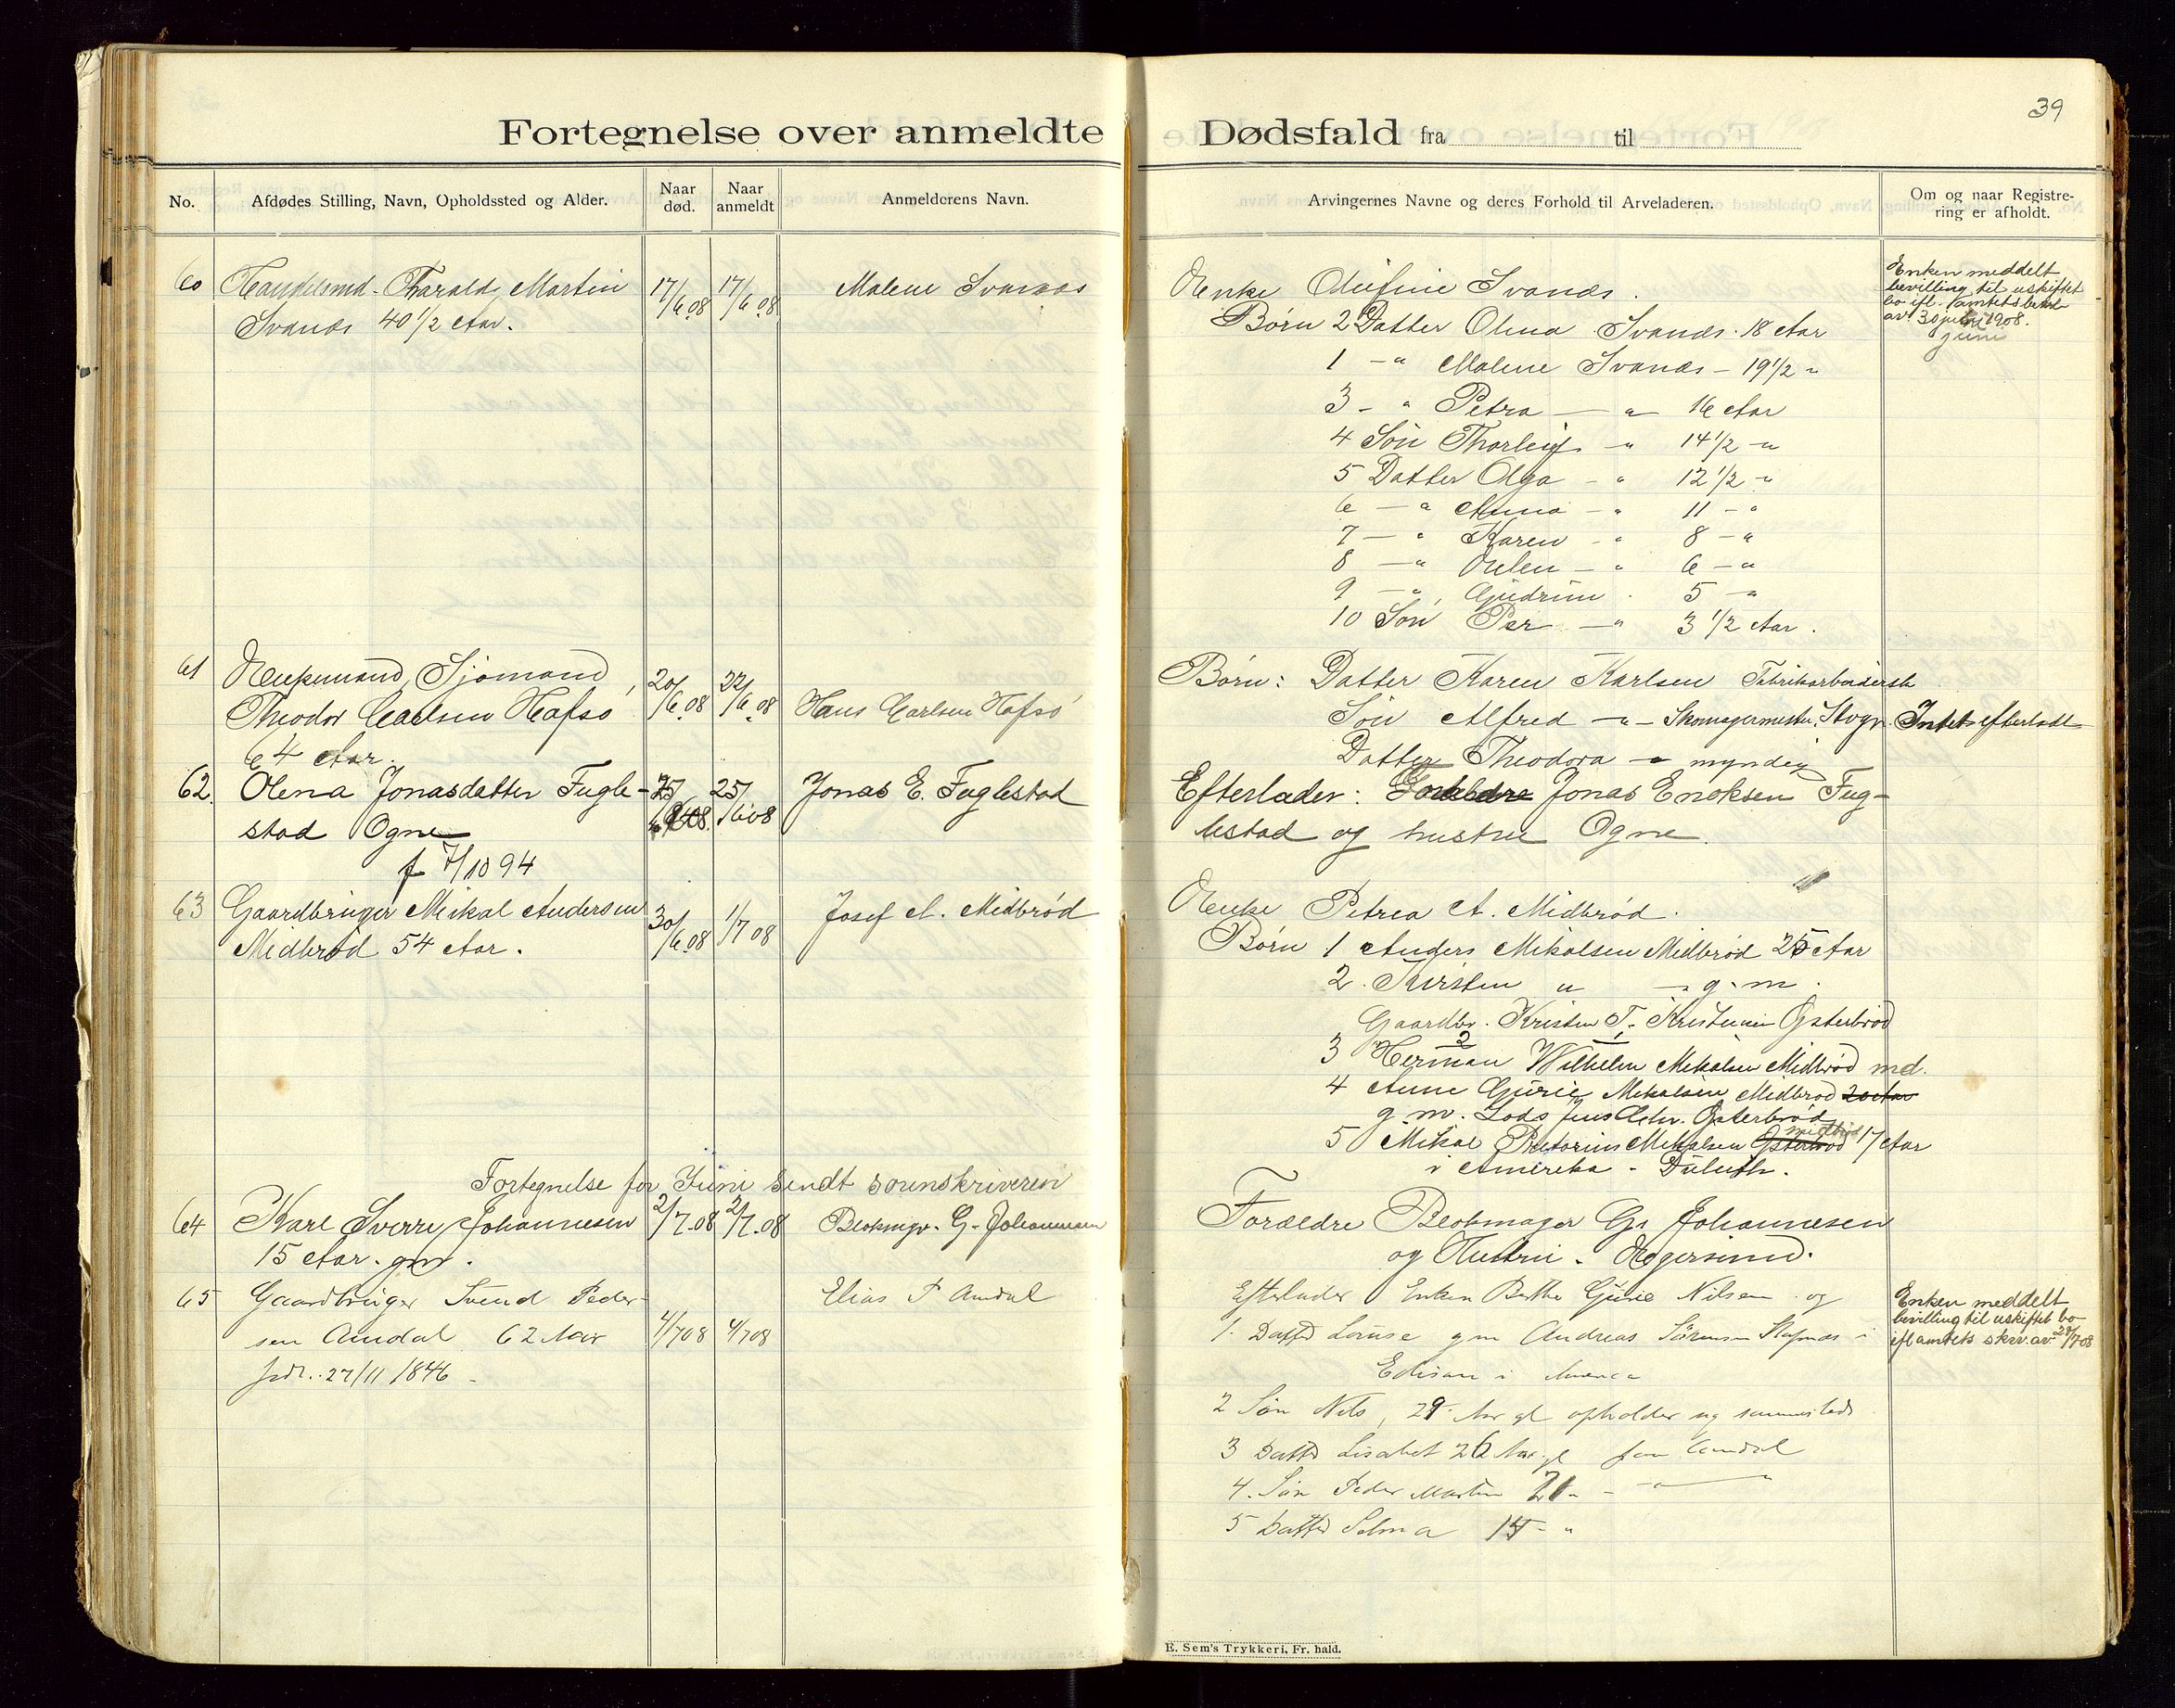 39
Fortegnelse over anmeldte Dødsfald fra til
No.
Afdødes Stilling, Navn, Opholdssted og Alder.
Naar død.
Naar anmeldt
Anmelderens Navn.
Arvingernes Navne og deres Forhold til Arveladeren.
Om og naar Registrering er afholdt.
60 Handelsmd. Tharald Martin 17/6 08 17/6 08 Malene Svanæs
Svanæs 40 1/2 Aar.
Enke Svanæs.
Børn 2 Datter Olena Svanæs 18 Aar
1 -"- Malene Svanæs - 19 1/2 "
3 - " Petra - " - 16 Aar
4 Søn Thorleif - " 14 1/2 - "
5 Datter Olga - " 12 1/2 - "
6 - " Anna - " 11 - "
7 - " Karen - " 8 - "
8 - " - " 6 - "
9 - " Gudrun 5 - "
10 Søn Per - " 3 1/2 Aar.
Enken meddelt
bevilling til uskiftet
bo ifl. amtets
av 30 juli 1908.
juni
61 Enkemand, Sjømand, 20/6 08 22/6 08 Hans Carlsen Hafsø
Theodor Carlsen Hafsø
64 Aar.
Børn: Datter Karen Karlsen Fabrikarbeiderske
Søn Alfred - " - Skomagermester, Stvgr. Intet efterladt
Datter Theodora - " myndig
62. Olena Jonasdatter Fugle- 25/6 08 25/6 08 Jonas E. Fuglestad
stad Ogne
f 7/10 94
Efterlader: Forældre Jonas Enoksen Fug-
lestad og hustru Ogne.
63 Gaardbruger Mikal Andersen 30/6 08 1/7 08 Josef A. Midbrød
Midbrød 54 Aar.
Enke Petrea A. Midbrød.
Børn 1 Anders Mikalsen Midbrød 25 Aar
2. Kirsten " - " g. m.
Gaardbr. Kristen T. Kristensen Østerbrød
3 Herman Wilhelm Mikalsen Midbrød md.
4 Anne Gurie Mikalsen Midbrød 20 Aar
g. m. Lods Jens Østerbrød
5 Mikal Pretorius Mikalsen Østerbrød midbrød 17 Aar
i Amerika - Duluth.
Fortegnelse for Juni sendt sorenskriveren
64 Karl Sverre Johannesen 2/7 08 2/7 08 Blokmgr. G. Johannesen
15 Aar. gm.
Forældre Blokmager G. Johannesen
og Hustru. Egersund.
65 Gaardbruger Svend Peder- 4/7 08 4/7 08 Elias P Amdal
sen Amdal 62 Aar
født. 27/11 1846
Efterlader Enken Berthe Gurie Nilsen og
1. Datter Louise gm Andreas Sørensen Stapnæs i
Edison i America
2 Søn Nils, 29 Aar gl opholder sig sammesteds
3 Datter Lisabet 26 Aar gl paa Amdal
4. Søn Peder Martin 21 " - "
5 Datter Selma 15 - "
Enken meddelt
bevilling til uskiftet bo
ifl amtets skr. av 29/7 08
E. Sem's Trykkeri, Fr. hald.